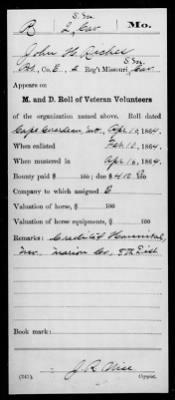 S.M.
B 2 Cav Mo.
John H. Riches
Pvt, Co. E, 2 Reg't Missouri S.M. Cav
Appears on
M. and D. Roll of Veteran Volunteers
of the organization named above. Roll dated
Cape Girardeau, Mo., Apr 10, 1864.
When enlisted Feb 12, 1864.
When mustered in Apr 16, 1864.
Bounty paid $ 100; due $ 100
Company to which assigned E
Valuation of horse, $ 100
Valuation of horse equipments, $ 100
Remarks: Credited Hannibal,
Mo. Marion Co.
Book mark:
(341) J. R. Copyist.